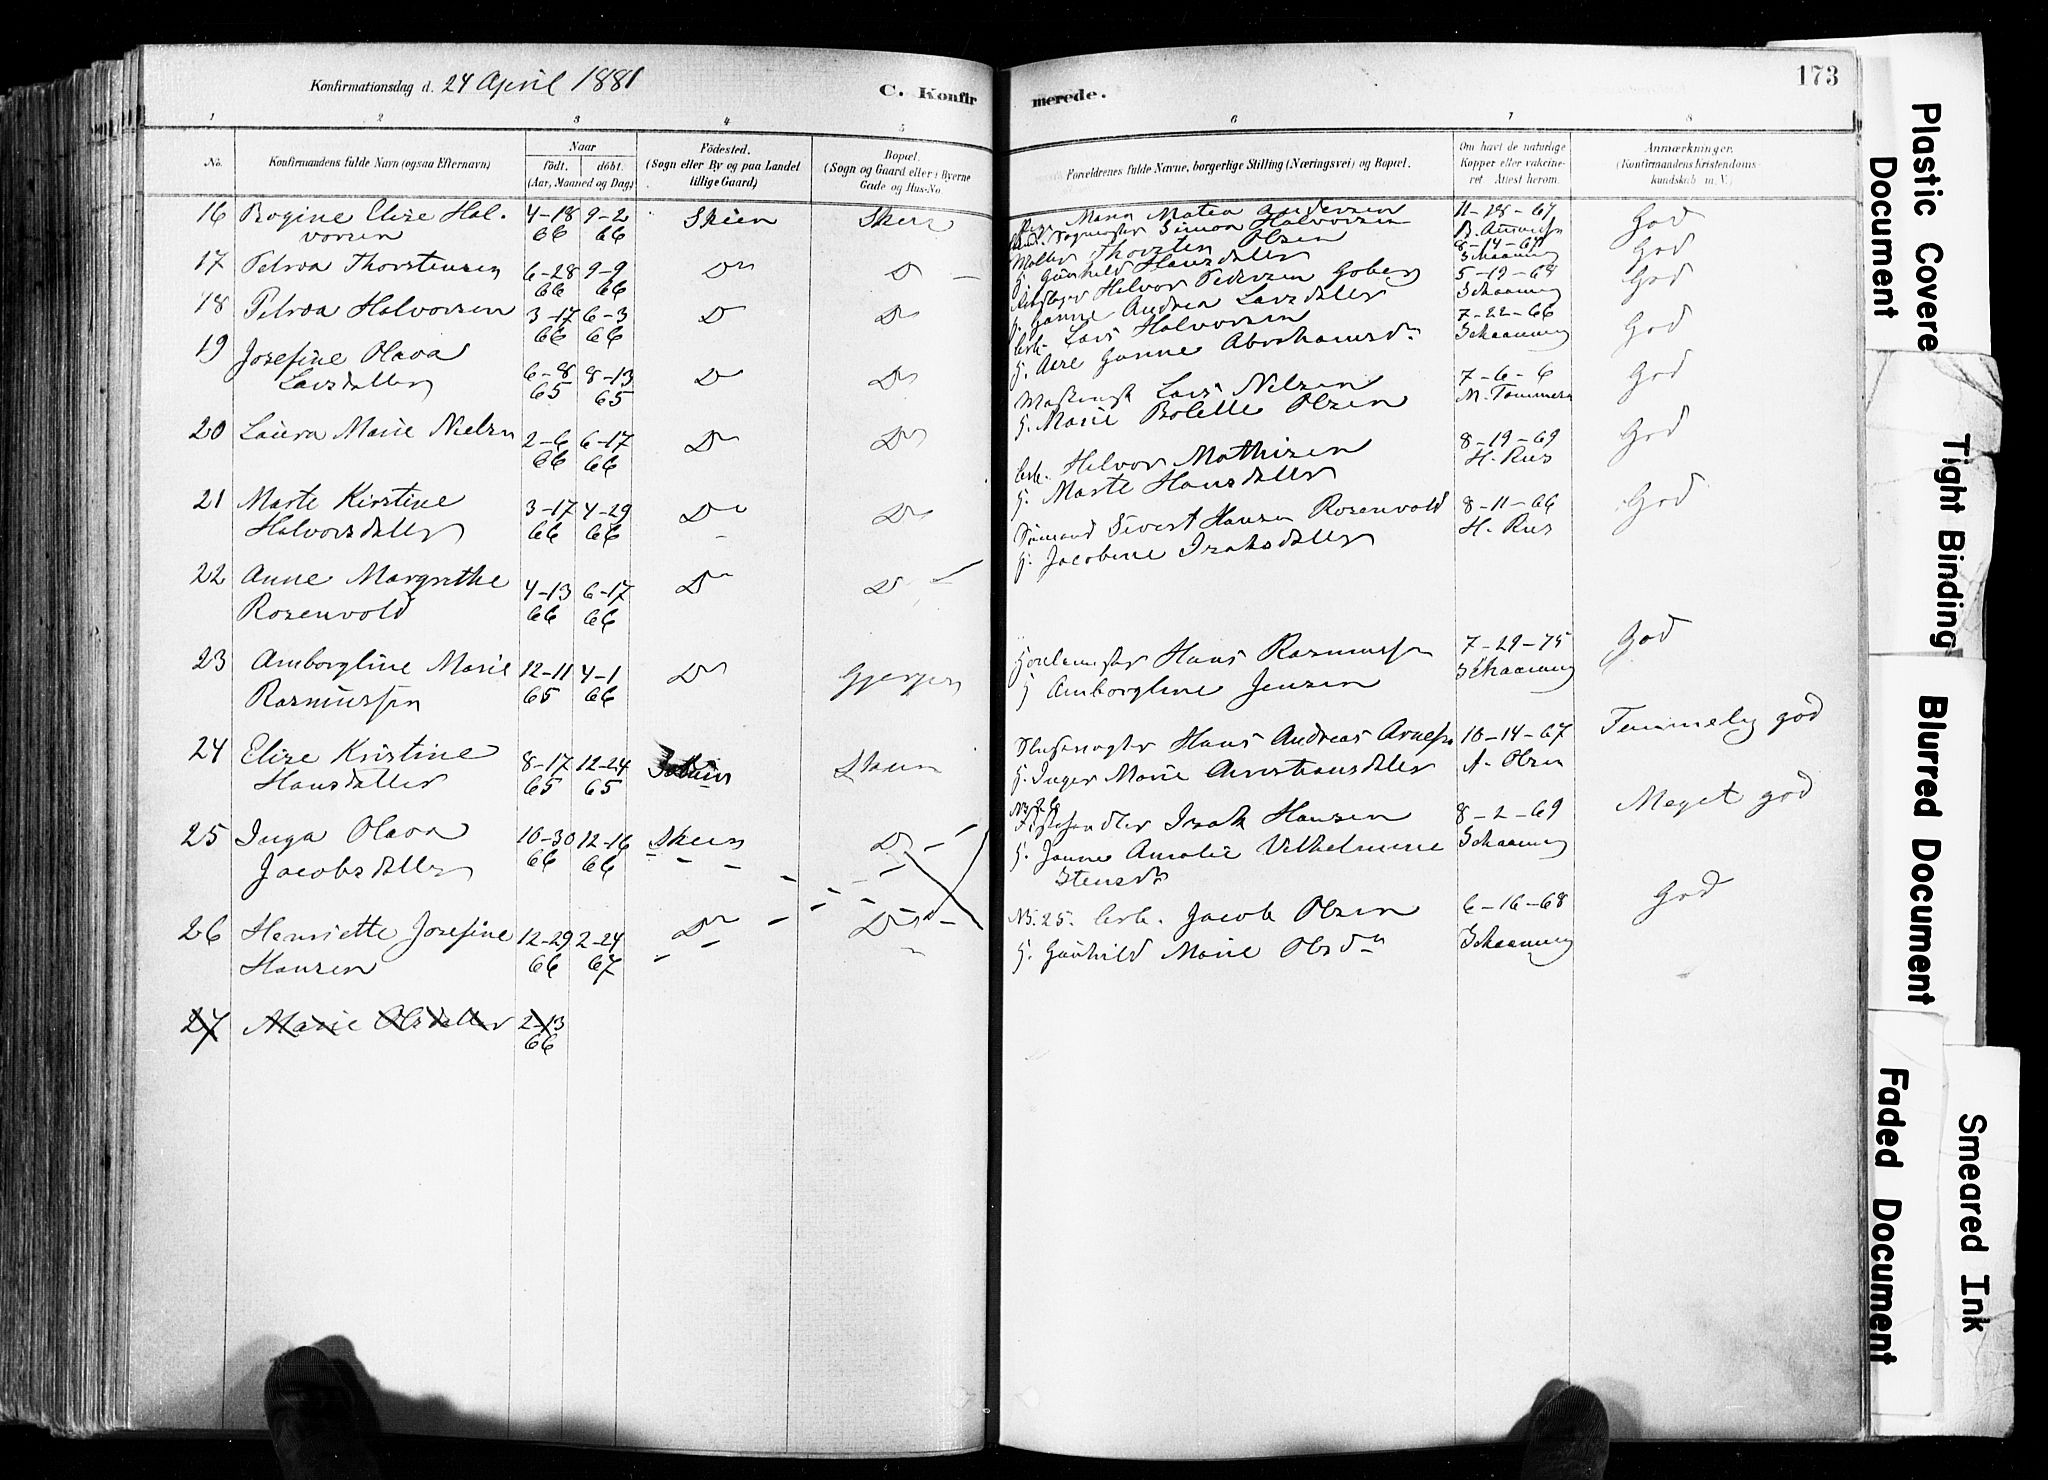 Konfirmationsdag d. 24 April 1881
C. Konfirmerede.
173
1 2 3 4 5 6 7 8
No.
Konfirmandens fulde Navn (ogsaa Efternavn)
Naar
födt. döbt.
(Aar, Maaned og Dag)
Födested.
(Sogn eller By og paa Landet
tillige Gaard)
Bopæl.
(Sogn og Gaard eller i Byerne
Gade og Hus-No.
Forældrenes fulde Navne, borgerlige Stilling (Næringsvei) og Bopæl.
Om havt de naturlige
Kopper eller vakcine-
ret. Attest herom.
Anmærkninger.
(Konfirmandens Kristendoms-
kundskab m. V.)
16 Rogine Elise Hal- 4-18 9-2 Skien Skien
vorsen 66 66
Maria Matea Andersen 11-28-67 God
Simon Halvorsen
17 Petrea Thorstensen 6-28 9-9 Do Do
66 66
Thorsten Olsen 8-14-67 God
G. Gunhild Hansdatter Schaanning
18 Petrea Halvorsen 3-17 6-3 Do Do
66 66
Halvor Pedersen 5-19-68 God
Andrea Larsdatter Schaanning
19 Josefine Olava 6-8 8-13 Do Do
Larsdatter 65 65
Arb. Lars Halvorsen 7-22-66 God
G. Aase Gunne Abrahamsdr Schaanning
20 Laura Marie Nielsen 2-6 6-17 Do Do
66 66
Lars Nilsen 7-6-6 God
G. Marie Bolette Olsen
21 Marte Kirstine 3-17 4-29 Do Do
Halvorsdatter 66 66
Arb. Halvor Mathisen 8-19-69 God
G. Marte Hansdatter H. Riis
22 Anne Margrethe 4-13 6-17 Do Do
Rosenvold 66 66
Sömand Sivert Hansen Rosenvold 8-11-66 God
G. Jacobine Isaksdatter H. Riis
23 Amborgline Marie 12-11 4-1 Do Gjerpen
Rasmussen 65 66
Hans Rasmussen 7-29-75 God
G Amborgline Jensen Schaanning
24 Elise Kristine 8-17 12-24 Skien
Hansdatter 65 65
Hans Andreas 10-14-67 Temmelig god
G. Inger Marie A. Olsen
25 Inga Olava 10-30 12-16 Skien Do
Jacobsdatter 66 66
No 26
Fiskehandler Isak Hansen 8-2-69 Meget god
G. Janne Amalie Vilhelmine Schaanning
Stensdr
26 Henriette Josefine 12-29 2-24 Do Do
Hansen 66 67
No. 25. Arb. Jacob Olsen 6-16-68 God
G. Gunhild Marie Olsdr Schaanning
27 Marie Olsdatter 2-13
66
Plastic Covere
Document
Tight Binding
Blurred Document
Faded Document
Smeared Ink